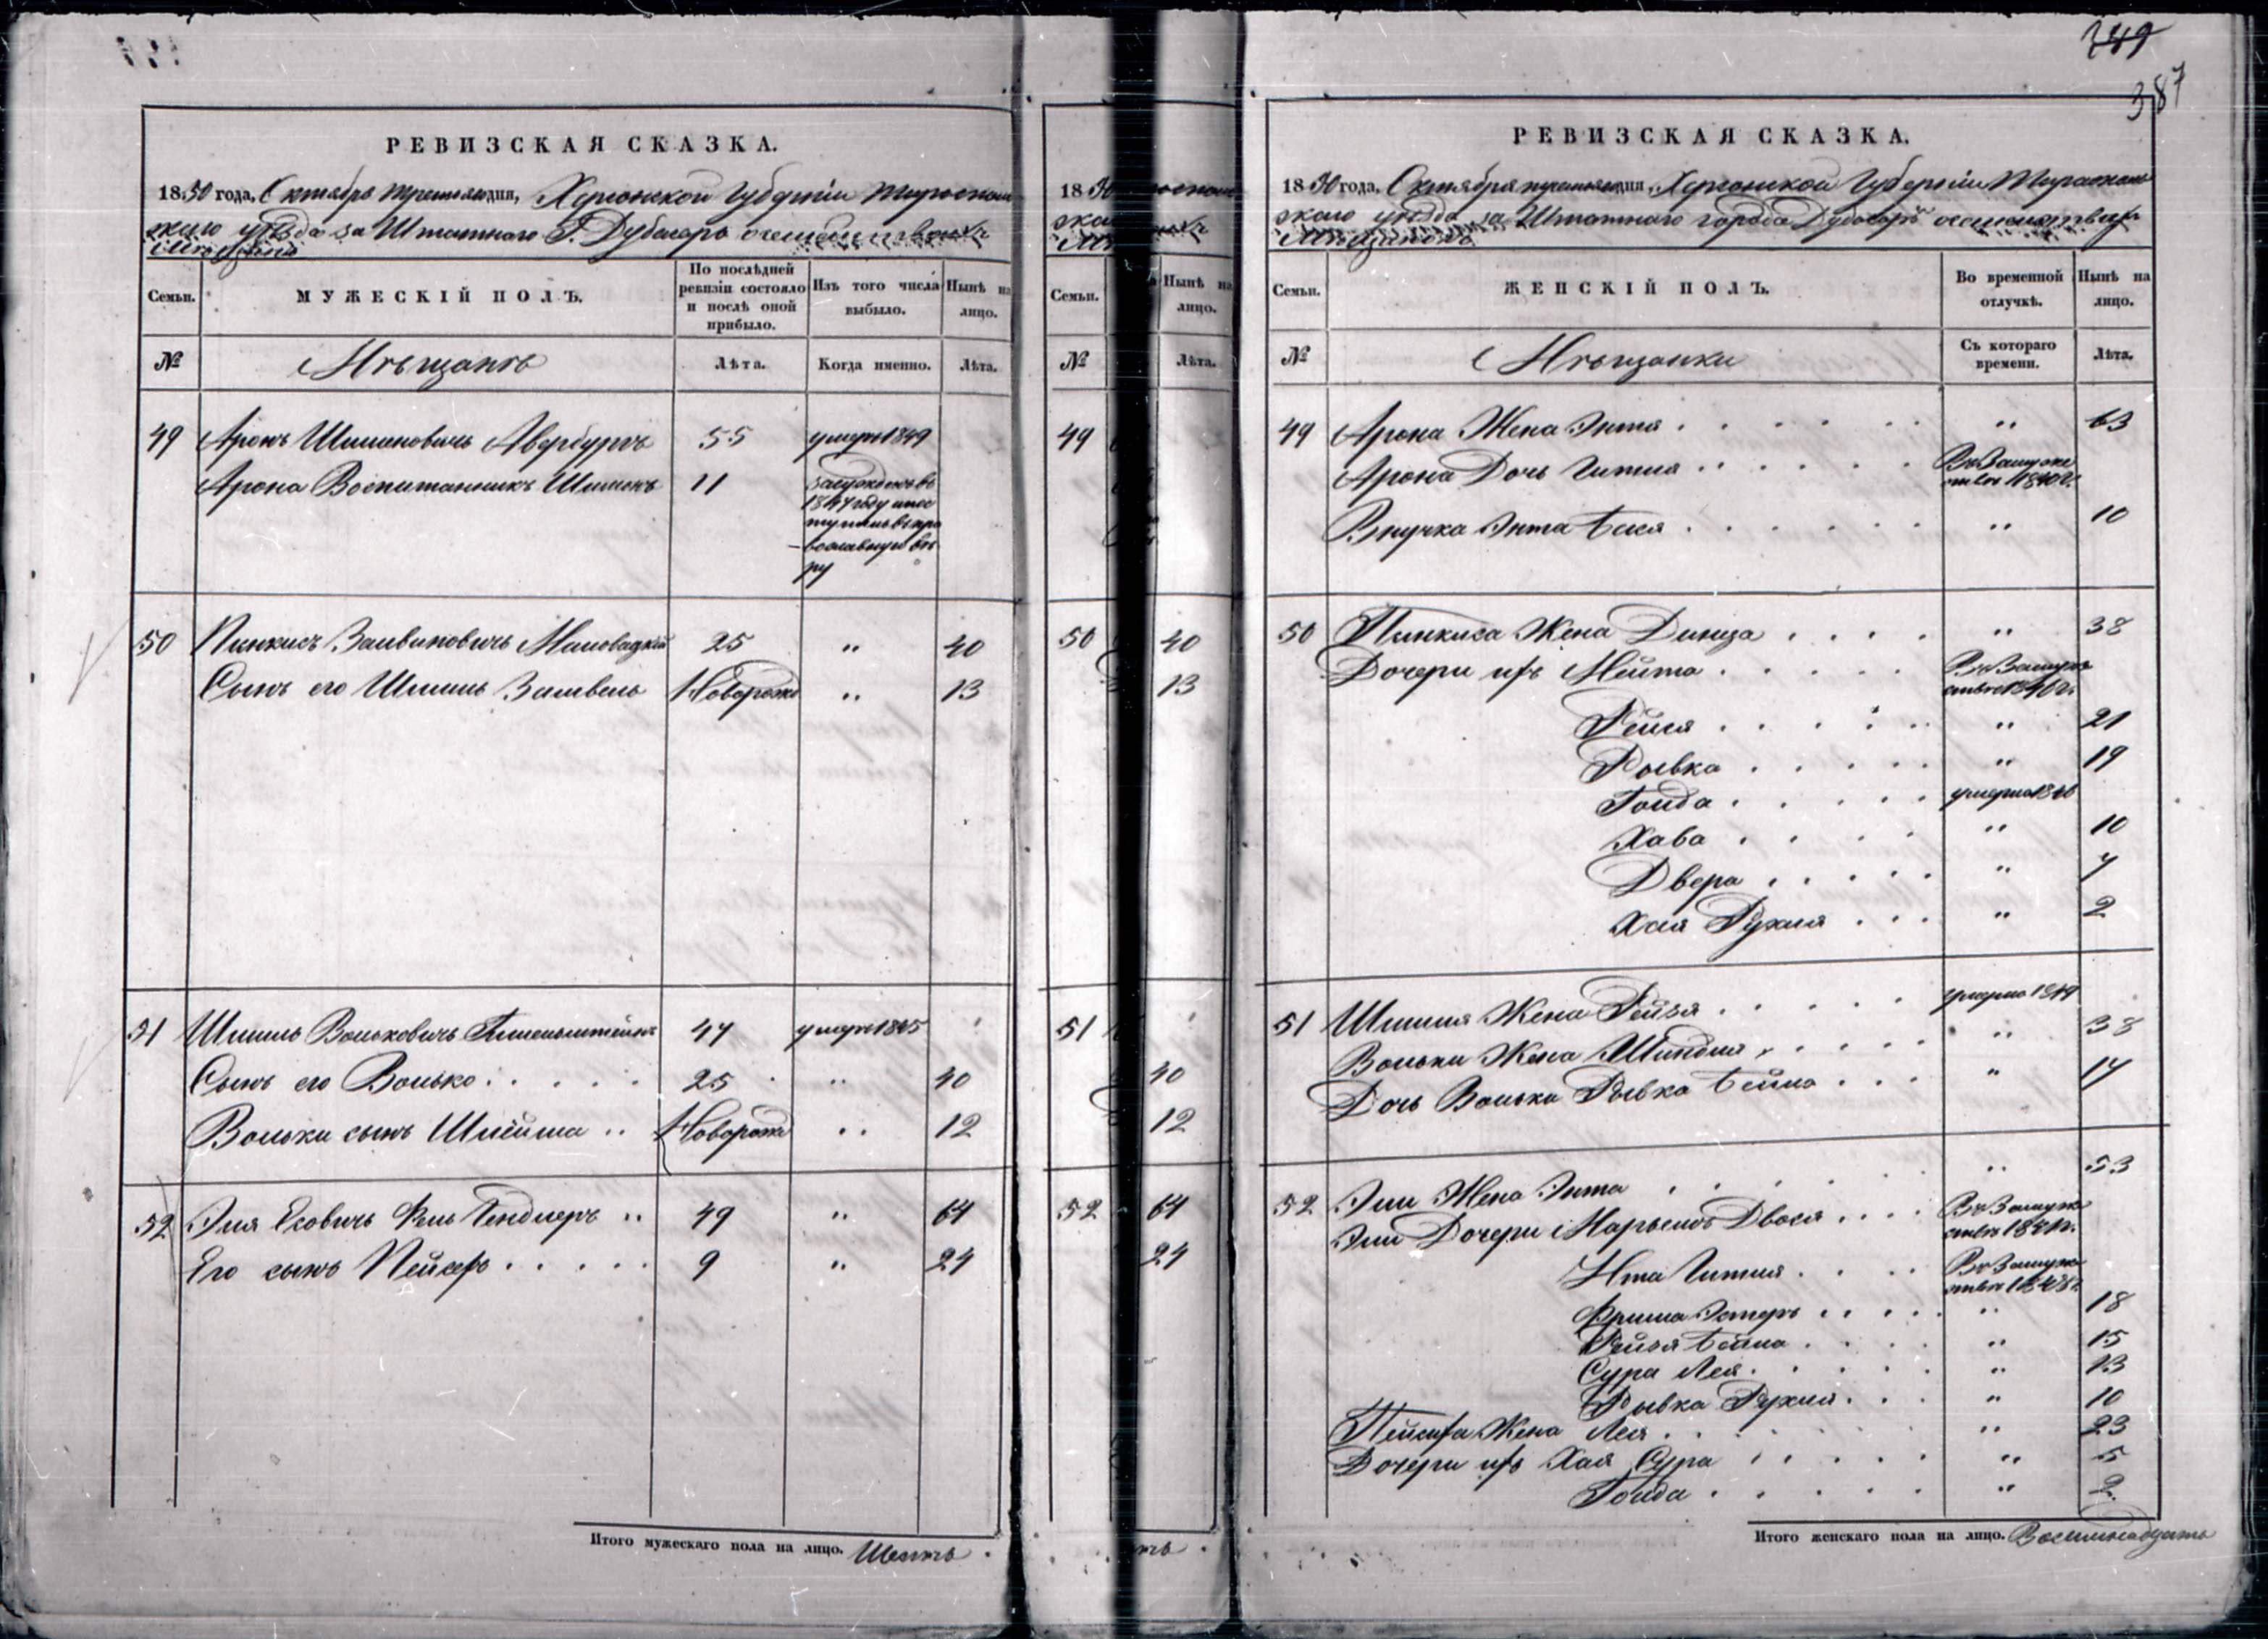 РЕВИЗСКАЯ СКАЗКА.
1850 года, Октября третьяго дня, Херсонской Губерніи Тираспольскаго уѣзда за Штатнаго Г. Дубасарь
Мѣщанъ
Семьи.
МУЖЕСКІЙ ПОЛЪ.
По послѣдней ревизіи состояло и послѣ оной прибыло.
Изъ того числа выбыло.
Нынѣ на лицо.
№
Мѣщане
Лѣта.
Когда именно.
Лѣта.
49 Аронъ Шимоновичь Авербурхъ 55 умеръ 1849
Арона Воспитанникъ Шимонъ 11 въ
1847 году и пос
тупилъ въ пра
вославную вѣ
ру
50 Пинкисъ Заивиловичь 25 " 40
Сынъ его Шмиль Заивель Новорожд " 13
51 Шмиль Вольковичь 47 умеръ 1845
Сынъ его Волько 25 " 40
Вольки сынъ Новорожд " 12
52 Эля 49 " 64
Его сынъ Пейсехъ 9 " 24
Итого мужескаго пола на лицо. Шесть
18
Семьи.
Нынѣ на лицо.
№
Лѣта.
49
50 40
13
51
40
12
52 64
24
ть
749
387
РЕВИЗСКАЯ СКАЗКА.
1850 года, Октября третьяго дня, Херсонской Губерніи Тирасполь
скаго уѣзда за Штатнаго города Дубасарь
Семьи.
ЖЕНСКІЙ ПОЛЪ.
Во временной отлучкѣ.
Нынѣ на лицо.
№
Мѣщанки
Съ котораго времени.
Лѣта.
49 Арона Жена Энта " 63
Арона Дочь Гитля Въ Замуже
ствѣ 1840 г.
Внучка Энта Бася " 10
50 Пинкиса Жена " 38
Дочери ихъ Мейта Въ Замуж
ствѣ 1840 г.
Рейзя " 21
Рывка " 19
Голда умерла 1846
Хава " 10
Двера " 7
Хая Рухля " 2
51 Шмиля Жена Рейзя умерла 1849
Вольки Жена Шиндля " 38
Дочь Волька Рывка Бейла " 17
52 Эли Жена Энта " 53
Эли Дочери Марьямъ Двося Въ Замуж
ствѣ
Ита Гитля Въ Замуж
ствѣ 1848 г.
Фрима Эстеръ " 18
Рейзя Бейла " 15
Сура Лея " 13
Рывка Рухля " 10
Пейсиха Жена Лея " 23
Дочери ихъ Хая Сура " 5
Голда " 2
Итого женскаго пола на лицо. Восемнадцать